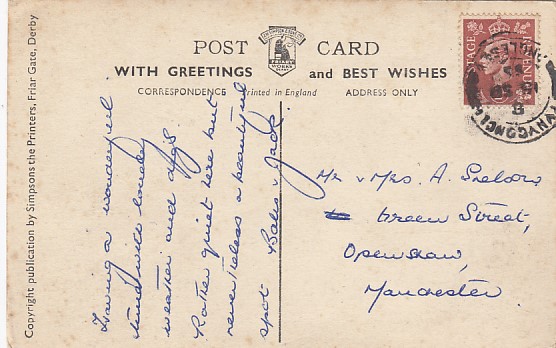 POST CARD
WITH GREETINGS and BEST WISHES
CORRESPONDENCE Printed in England ADDRESS ONLY
Copyright publication by Simpsons the Printers, Friar Gate, Derby
Having a wonderful
time with lovely
weather and digs
Rather quiet here but
nevertheless a beautiful
spot Jack
Mr & Mrs. A.
Green Street,
Openshaw,
Manchester.
POSTAGE
REVENUE